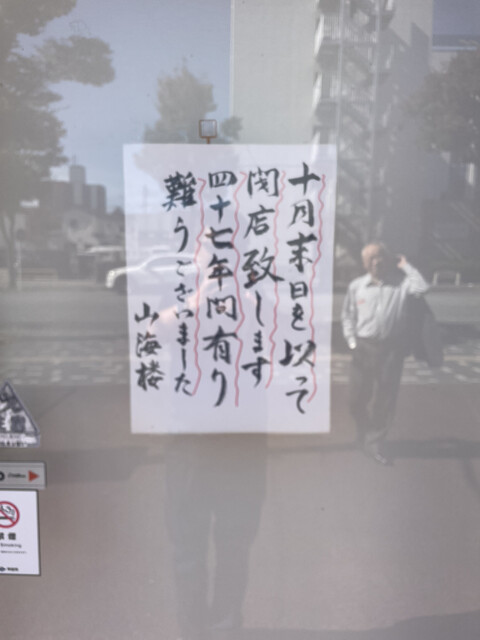 十月末日を以って
閉店致します
四十七年間有り
難うございました
山海楼